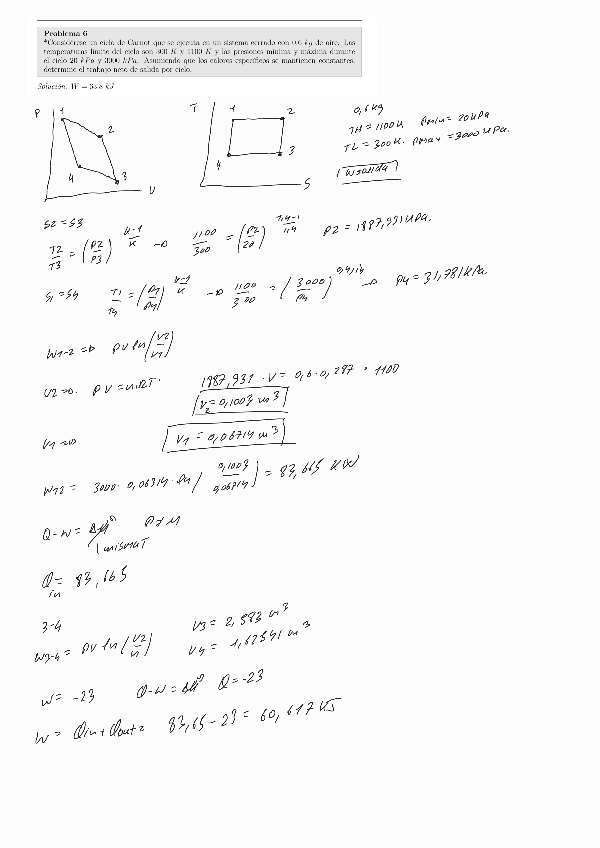 Problema 6
*Considérese un ciclo de Carnot que se ejecuta en un sistema cerrado con 0.6 kg de aire. Las
temperaturas límite del ciclo son 300 K y 1100 K y las presiones mínima y máxima durante
el ciclo 20 kPa y 3000 kPa. Asumiendo que los calores específicos se mantienen constantes,
determine el trabajo neto de salida por ciclo.
Solución: W = 63.8 kJ
P 1 2 4 3 V
T 1 2 4 3 S
0,6 kg
TH = 1100K Pmin = 20 kPa
TL = 300K. Pmax = 3000 kPa.
Wsalida
S2 = S3
T2/T3 = (P2/P3)^(k-1/k) → 1100/300 = (P2/20)^(1,4-1/1,4) P2 = 1887,931 kPa.
S1 = S4 T1/T4 = (P1/P4)^(k-1/k) → 1100/300 = (3000/P4)^(0,4/1,4) → P4 = 31,781 kPa.
W1-2 => PV ln(V2/V1)
V2 => PV = nRT · 1887,931 · V = 0,6 · 0,287 · 1100
V2 = 0,1003 m3
V1 => V1 = 0,06314 m3
W12 = 3000 · 0,06314 · ln(0,1003/0,06314) = 87,665 kW
Q - W = ΔU 0
1 mismaT
Qin = 83,665
3-4
W3-4 = PV ln(V2/V1) V3 = 2,583 m3
V4 = 1,62541 m3
W = -23 Q - W = ΔU 0 Q = -23
W = Qin + Qout = 83,65 - 23 = 60,617 KJ